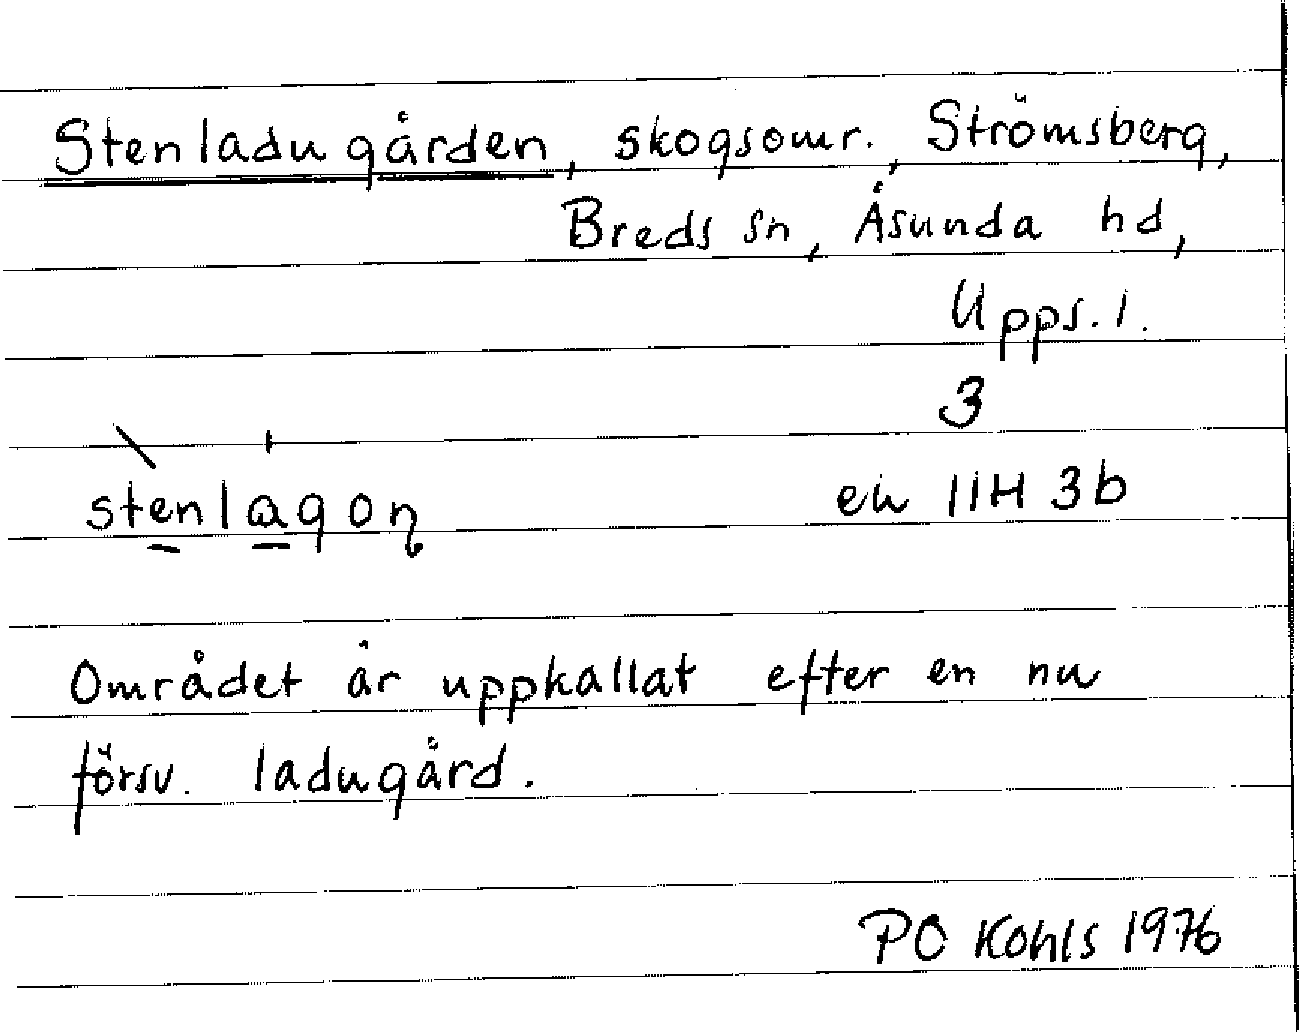 Stenladugården, skogsomr., Strömsberg,
Breds sn, Åsunda hd,
Upps. l.
3
stenlagon̥
ek 11H 3b
Området är uppkallat efter en nu
försv. ladugård.
PO Kohls 1976